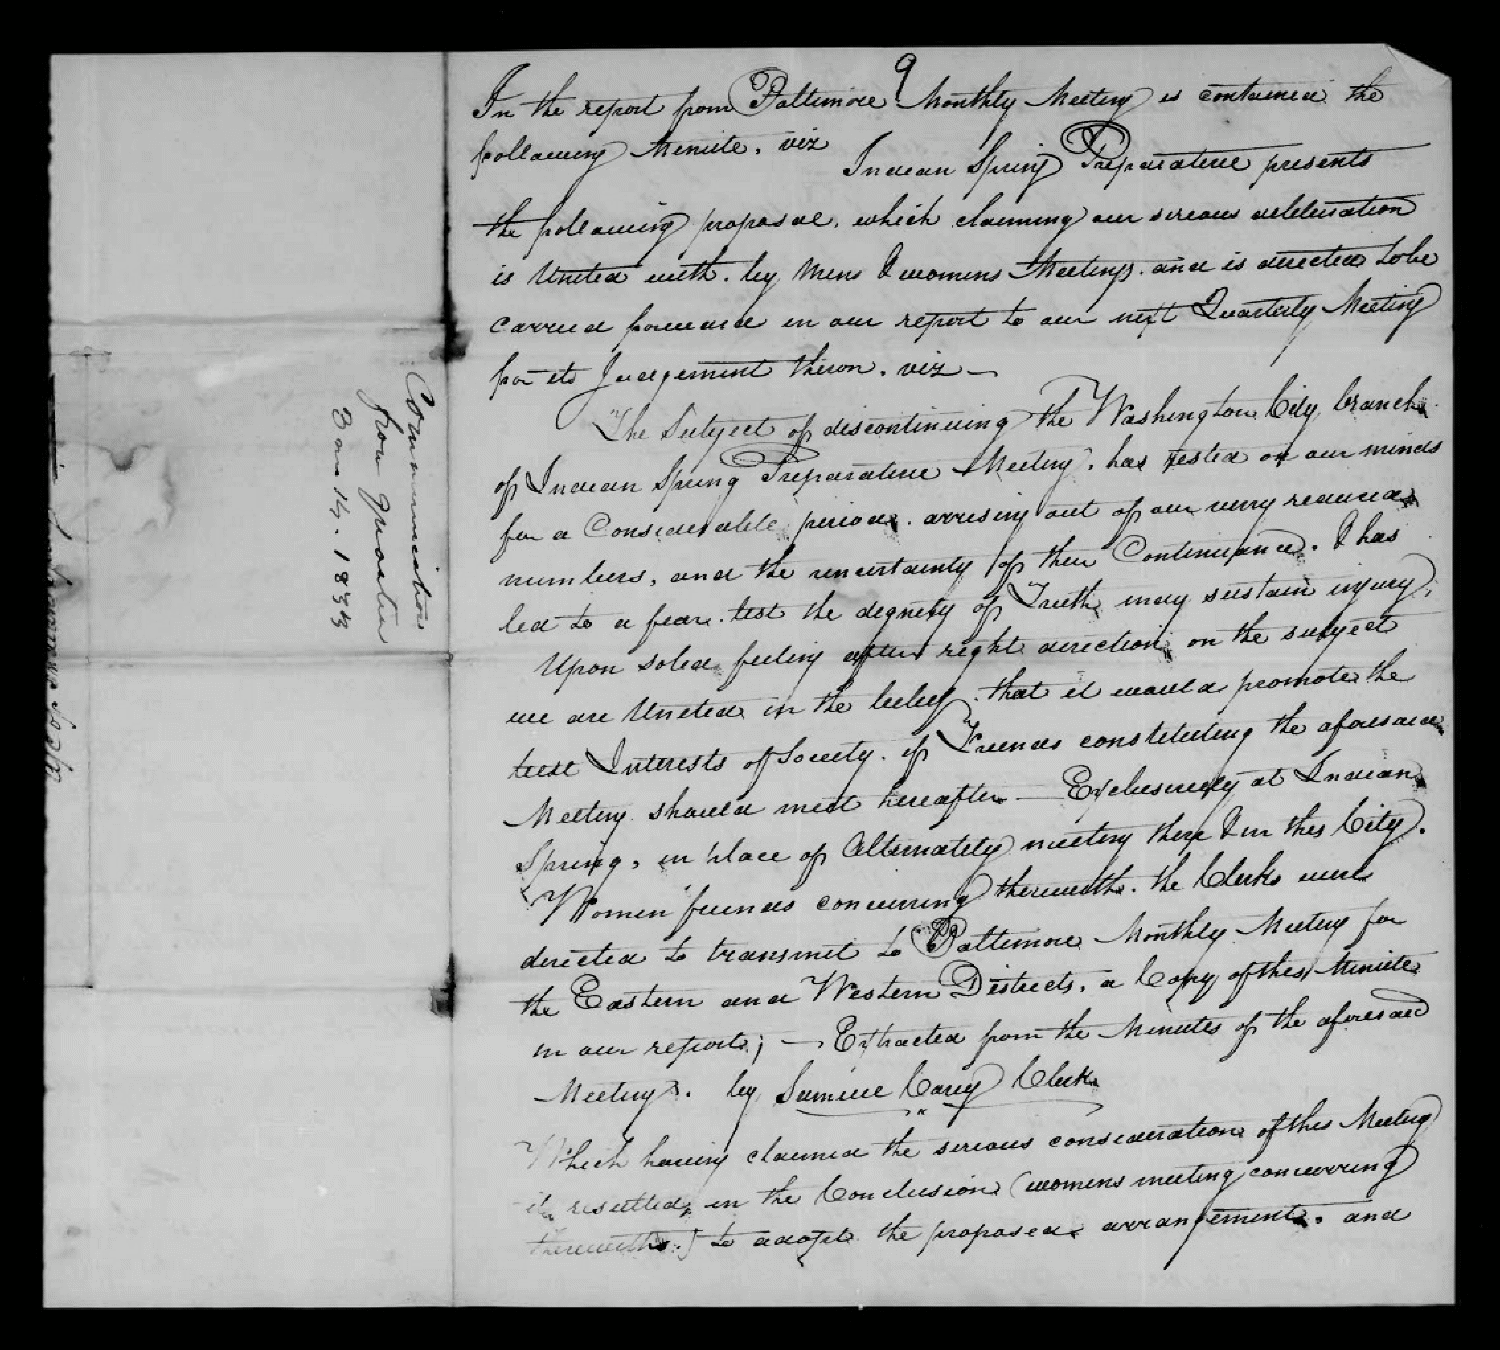 9
In the report from Baltimore Monthly Meeting is contained the
following Minute. viz
Indian Spring Preparative presents
the following proposal. which claiming our serious deliberation
is United with. by Mens & womens Meetings. and is directed to be
carried forward in our report to our next Quarterly Meeting
for its Judgement theron. viz —
The Subject of discontinuing the Washington City branch
of Indian Spring Preparative Meeting. has rested on our minds
for a Considerable period. arrising out of our very reduced
numbers, and the uncertainty of their Continuance. & has
led to a fear. lest the dignity of Truth may sustain injury.
Upon solid feeling after right direction on the subject
we are United in the belief. that it would promote the
best Interests of Society. if Friends constituting the aforesaid
Meeting should meet hereafter — Exclusively at Indian
Spring, in place of Alternately meeting there & in this City.
Women friends concurring therewith. the Clerks were
directed to transmit to Baltimore Monthly Meeting for
the Eastern and Western Districts. a Copy of this Minute
in our report; — Extracted from the Minutes of the aforesaid
Meeting. by Samuel Carey Clerk
Which having claimed the serious consideration of this Meeting
it resulted, in the Conclusion (womens meeting concurring
therewith.) to adopt the proposed arrangement. and
Communication
from quarter
3 mo 14. 1833